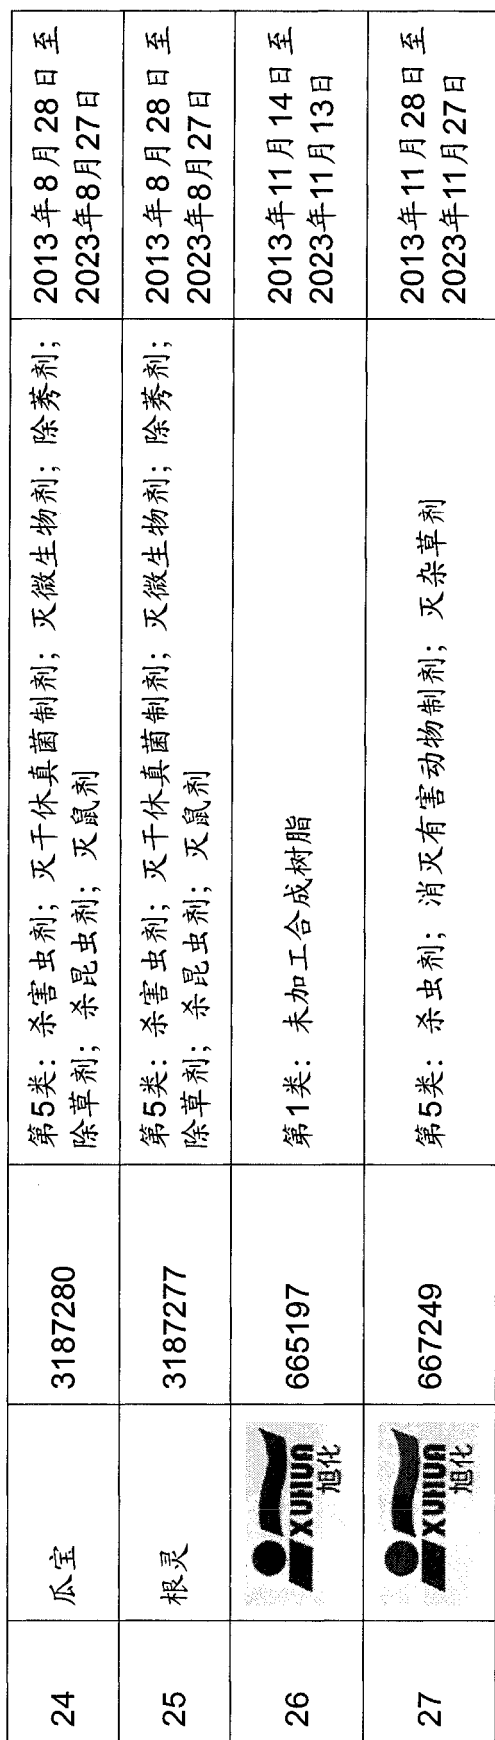 24
瓜宝
3187280
第5类：杀害虫剂；灭干休真菌制剂；灭微生物剂；除莠剂；
除草剂；杀昆虫剂；灭鼠剂
2013年8月28日至
2023年8月27日
25
根灵
3187277
第5类：杀害虫剂；灭干休真菌制剂；灭微生物剂；除莠剂；
除草剂；杀昆虫剂；灭鼠剂
2013年8月28日至
2023年8月27日
26
XUHUA
旭化
665197
第1类：未加工合成树脂
2013年11月14日至
2023年11月13日
27
XUHUA
旭化
667249
第5类：杀虫剂；消灭有害动物制剂；灭杂草剂
2013年11月28日至
2023年11月27日